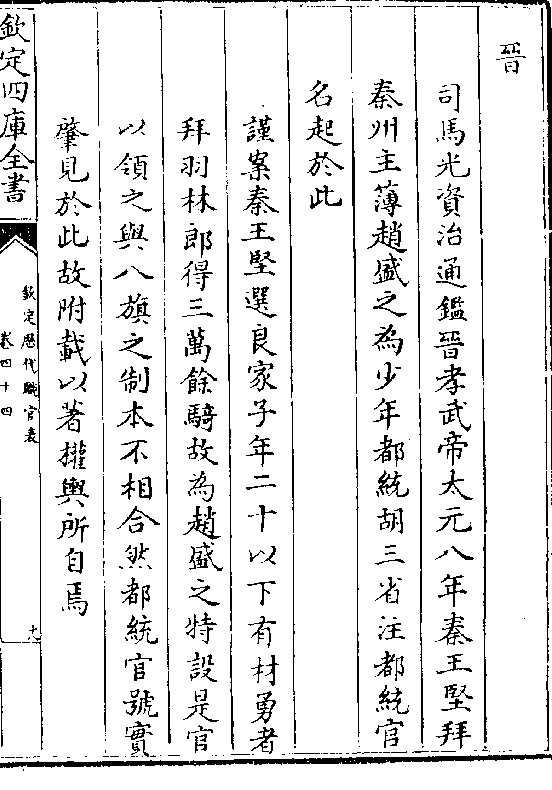 晉
司馬光資治通鑑晉孝武帝太元八年秦王堅拜
秦州主薄趙盛之為少年都統胡三省注都統官
名起於此
謹案秦王堅選良家子年二十以下有材勇者
拜羽林郎得三萬餘騎故為趙盛之特設是官
以領之與八旗之制本不相合然都統官號實
肇見於此故附載以著權輿所自焉
欽定四庫全書
欽定歷代職官表
卷四十四
十九